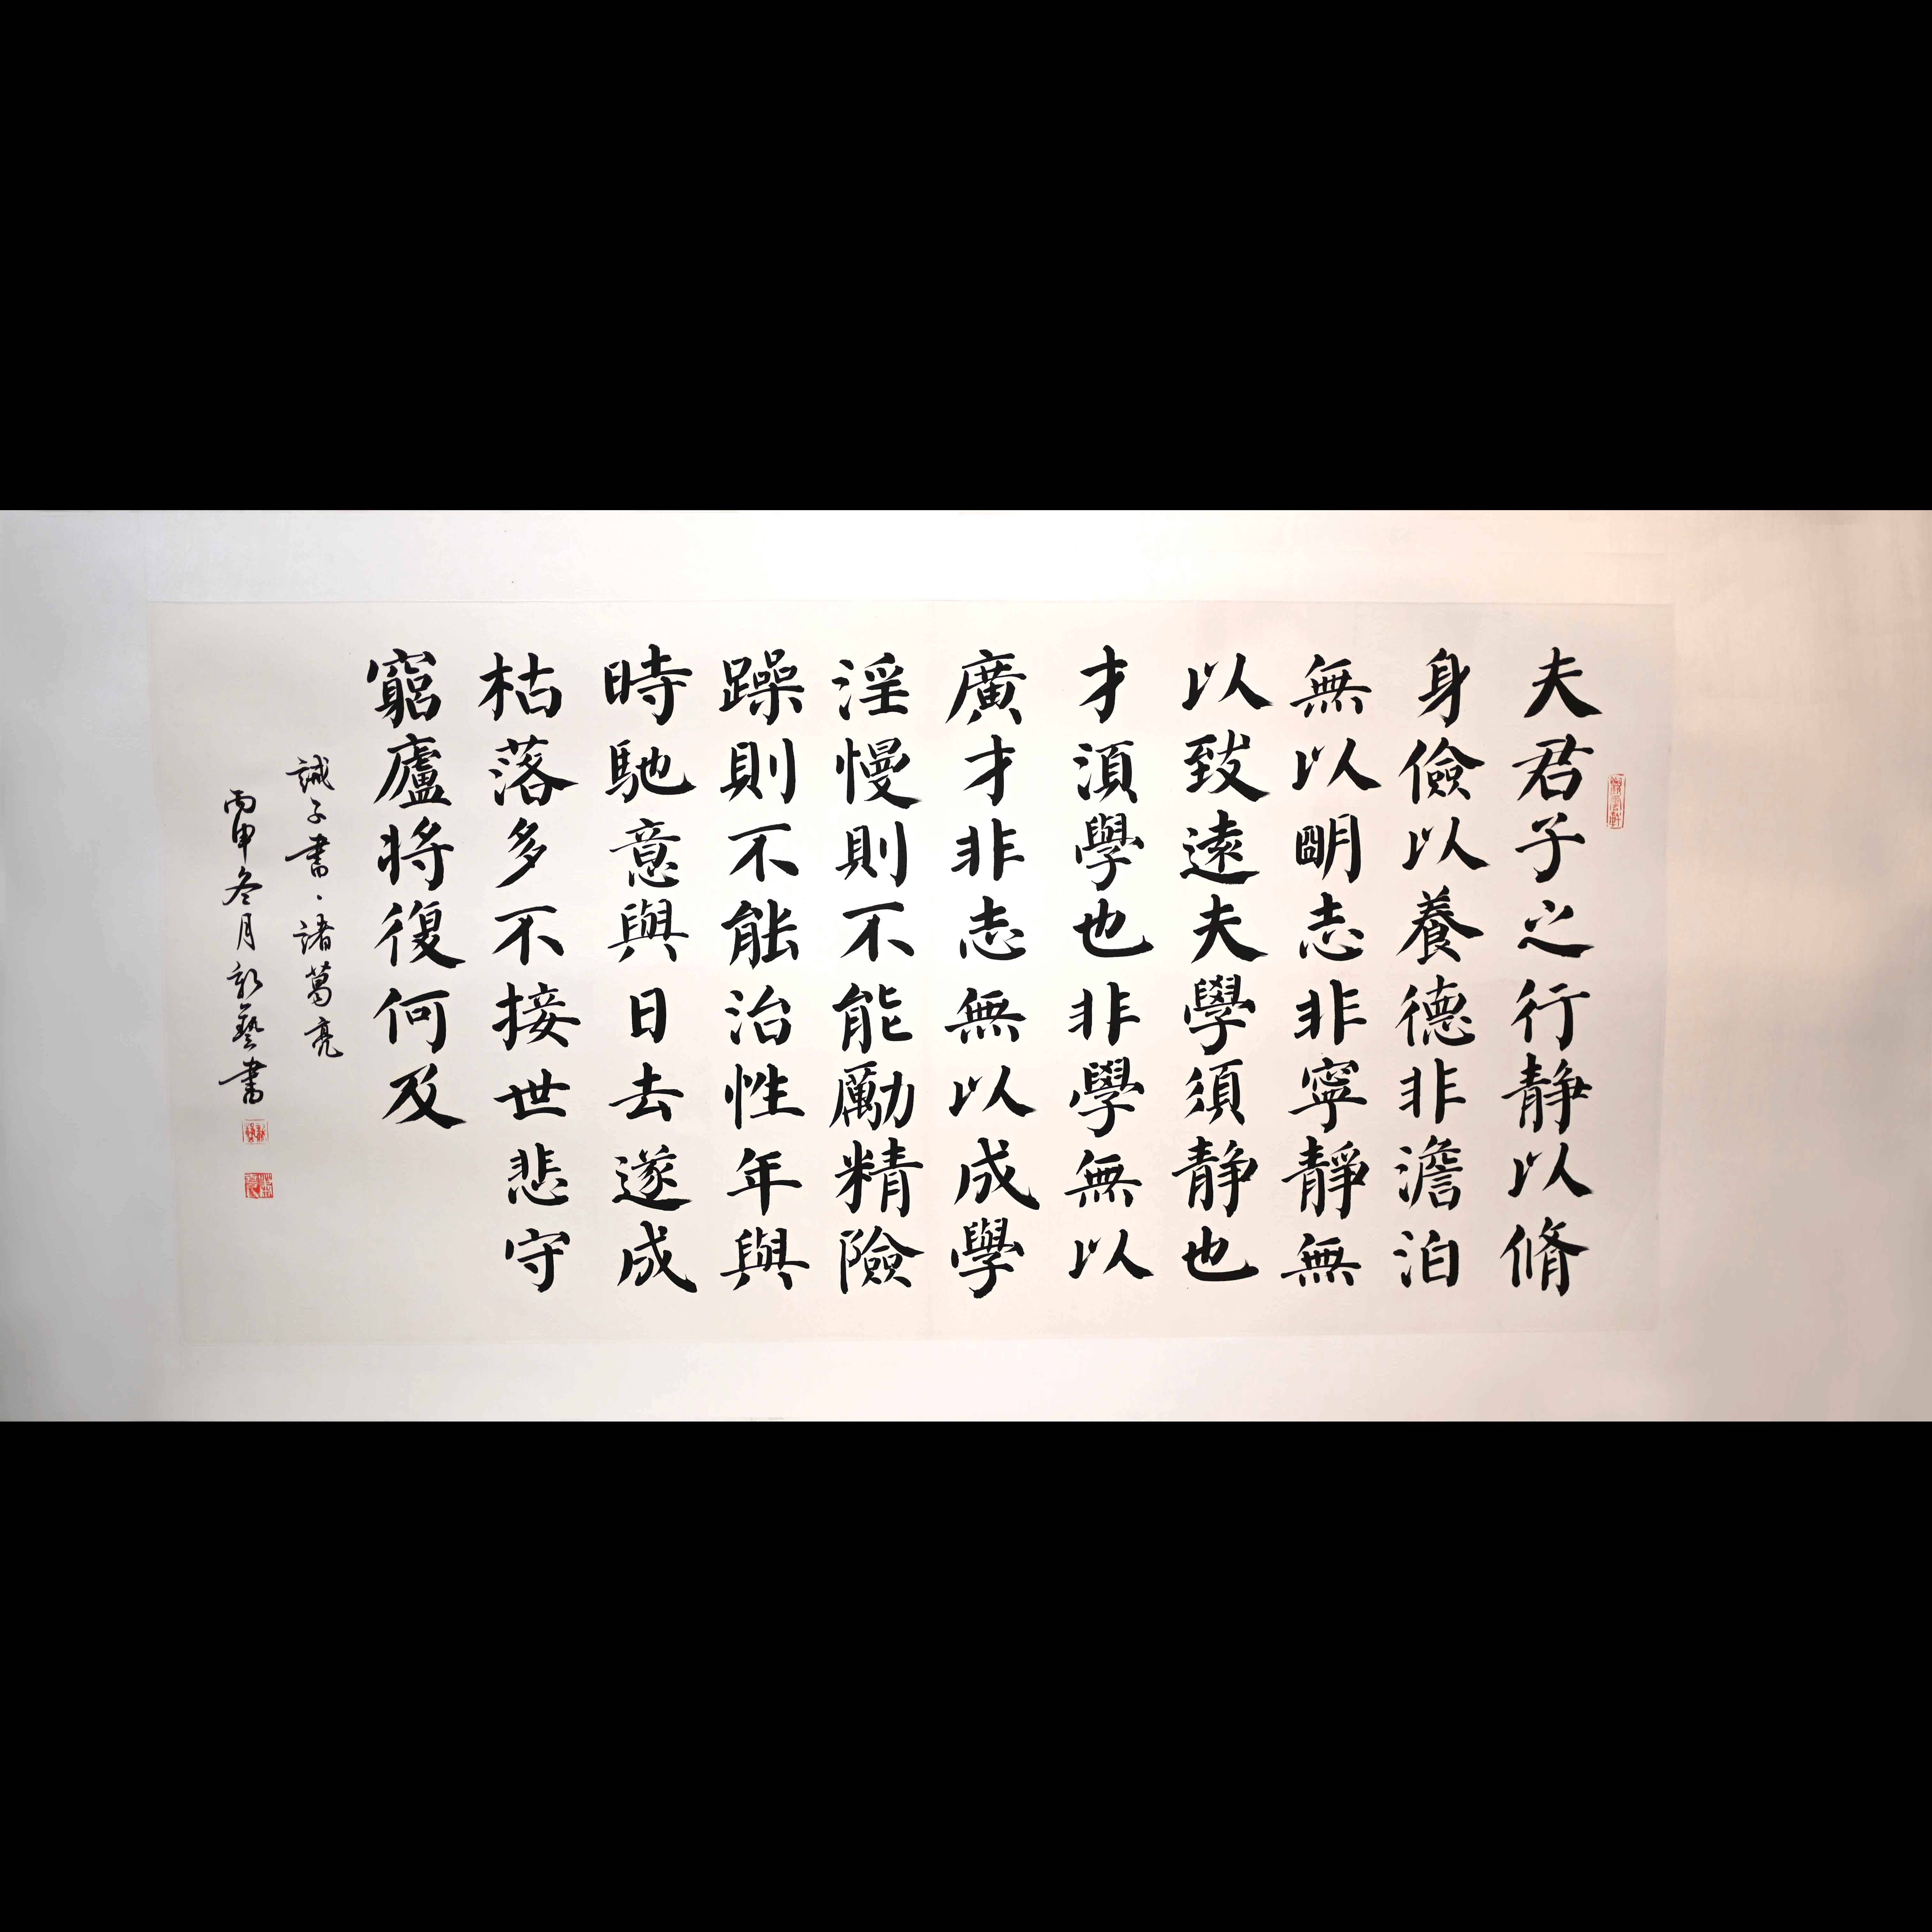 夫君子之行静以脩
身儉以養德非澹泊
無以朙志非寧靜無
以致遠夫學須静也
才湏學也非學無以
廣才非志無以成學
淫慢則不能勵精險
躁則不能治性年與
時馳意與日去遂成
枯落多不接世悲守
窮廬將復何及
誡子書、諸葛亮
丙申冬月 藝書